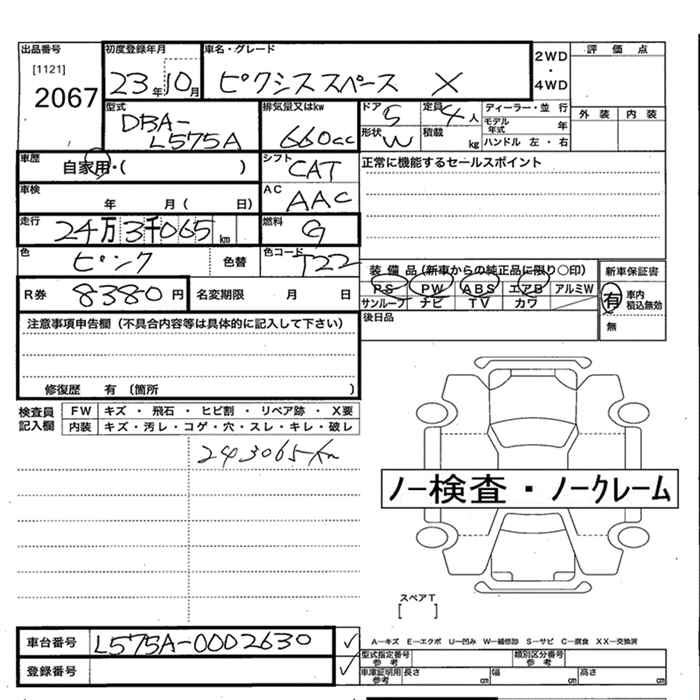 出品番号 初度登録年月 車名・グレード 2WD・4WD 評価点
[1121]
2067
23年10月 ピクシススペース X
外装 内装
型式 DBA-L575A
排気量又はkw 660cc
ドア 5 定員 4人
形状 W 積載 kg
ディーラー・並行
モデル年式 年
ハンドル 左・右
車歴 自家用・( )
シフト CAT
正常に機能するセールスポイント
車検 年 月( 日)
AC AAC
走行 24万3千065km
燃料 G
色 ピンク 色替
色コード T22
R券 8380円 名変期限 月 日
装備品(新車からの純正品に限り○印)
PS PW ABS エアB アルミW
サンルーフ ナビ TV カワ
新車保証書
有 車内積込無効
無
後日品
注意事項申告欄(不具合内容等は具体的に記入して下さい)
修復歴 有 〔箇所 〕
検査員記入欄
FW キズ・飛石・ヒビ割・リペア跡・X要
内装 キズ・汚レ・コゲ・穴・スレ・キレ・破レ
243065km
ノー検査・ノークレーム
スペアT
[ ]
車台番号 L575A-0002630 ✓
登録番号 ✓
A－キズ E－エクボ U－凹み W－補修跡 S－サビ C－腐食 XX－交換済
型式指定番号 参考 類別区分番号 参考
車庫証明用 参考 長さ cm 幅 cm 高さ cm